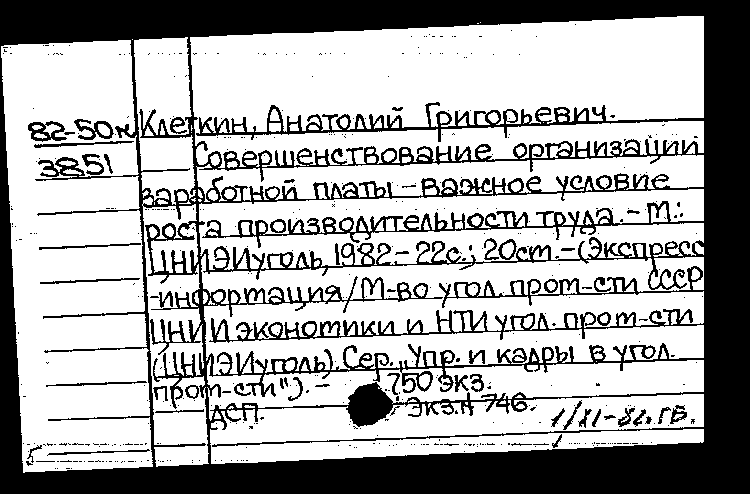 82-50к Клеткин, Анатолий Григорьевич.
3851 Совершенствование организации
заработной платы - важное условие
роста производительности труда. - М.:
ЦНИЭИуголь, 1982. - 22с.; 20см. - (Экспресс
-информация/М-во угол. пром-сти СССР
ЦНИИ экономики и НТИ угол. пром-сти
(ЦНИЭИуголь). Сер. „Упр. и кадры в угол.
пром-сти"). - 750 экз.
ДСП. Экз.N 746.
1/XI-82. ГБ.
5